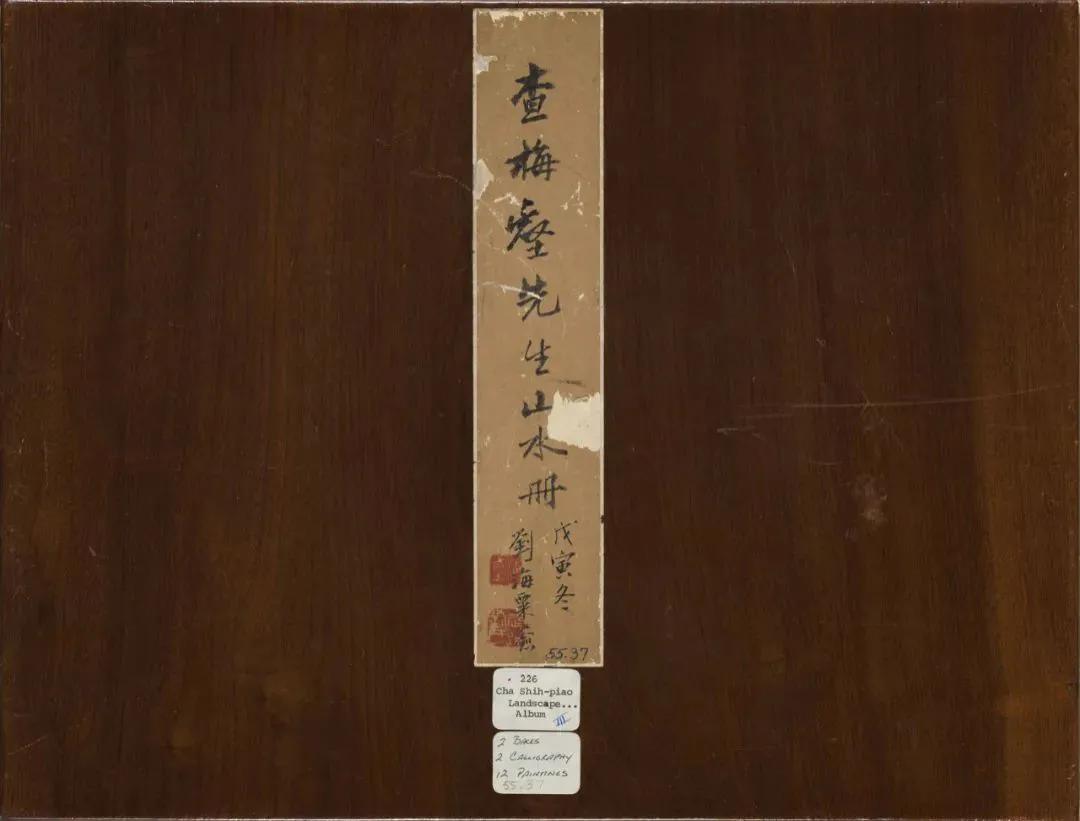 查梅壑先生山水冊
戊寅冬
劉海粟
55.37
. 226
Cha Shih-piao
Landscape...
Album III
2 BASES
2 CALLIGRAPHY
12 PAINTINGS
55.37